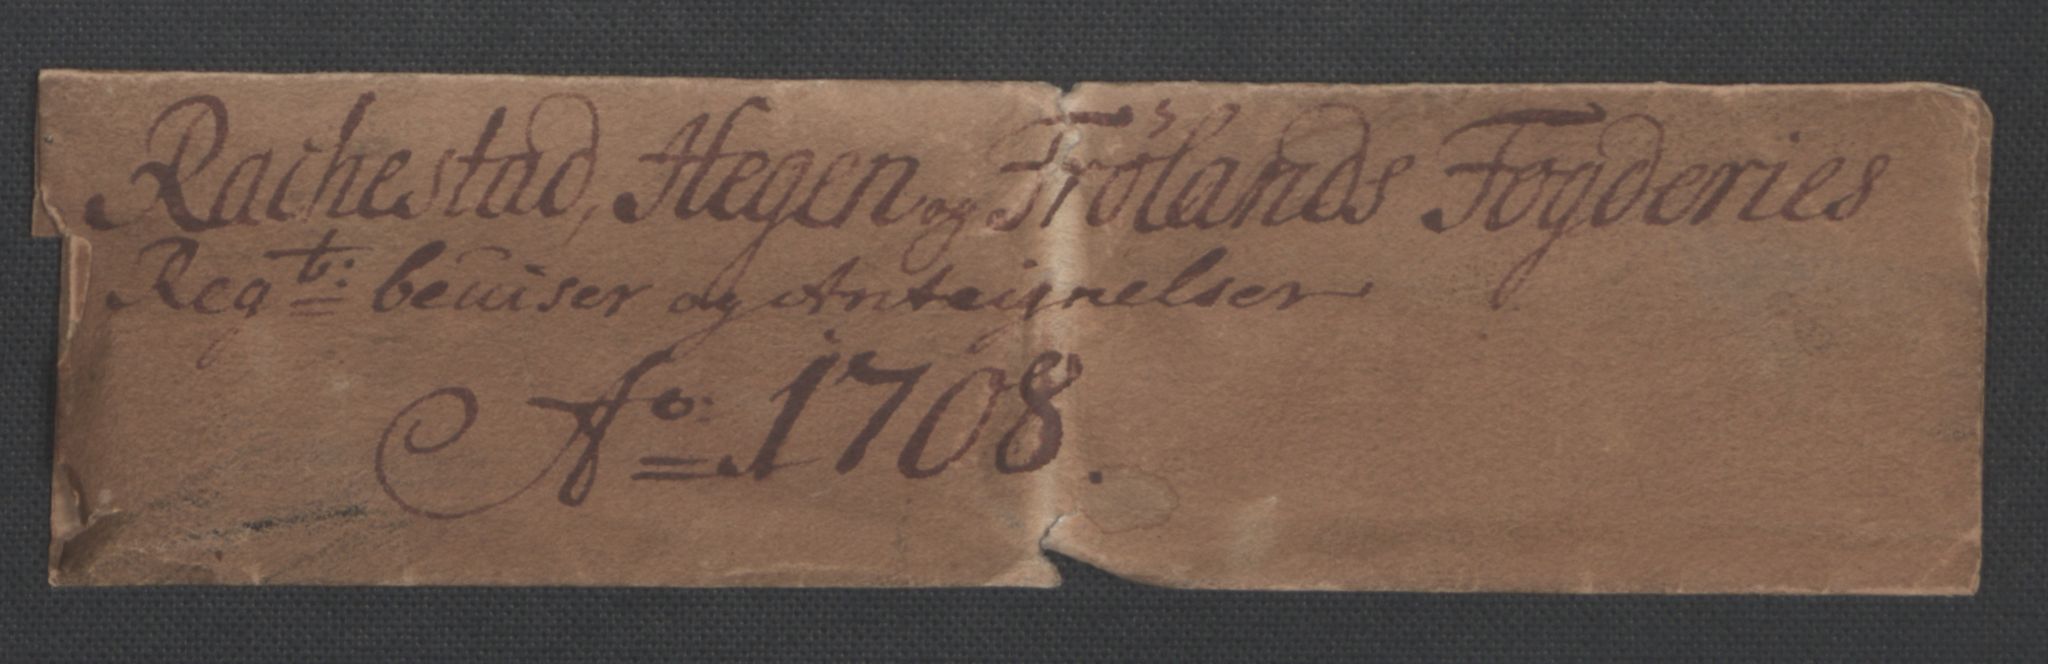 Rachestad, Hegen og Frölands Fogderies
Regtr: beuiser og Anteignelser
Ao: 1708.